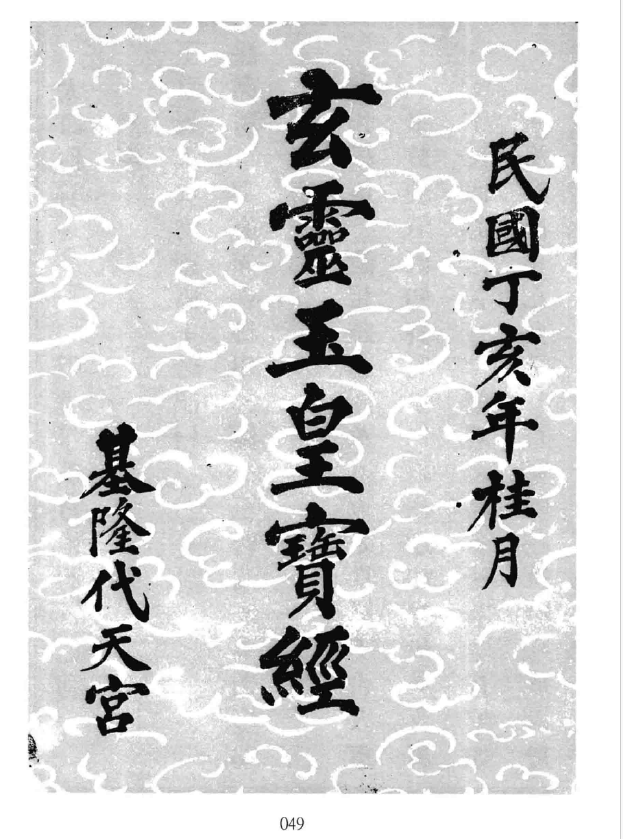 民國丁亥年桂月
玄靈玉皇寶經
基隆代天宮
049